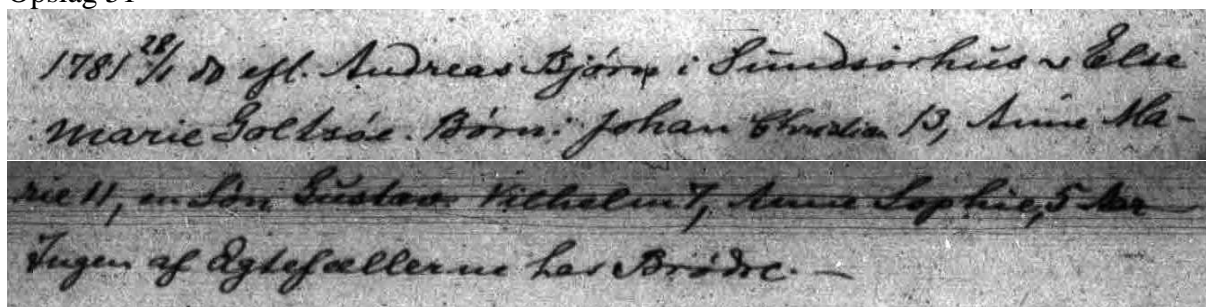 Opslag 31
1781 28/1 do efl. Andreas Bjørn i Sundsørhus & Else
Marie Goltsøe. Børn: Johan Christian 13, Anne Ma-
rie 11, en Søn Gustav Vilhelm 7, Anne Sophie, 5 Aar
Ingen af Egtefællerne har Brødre. —